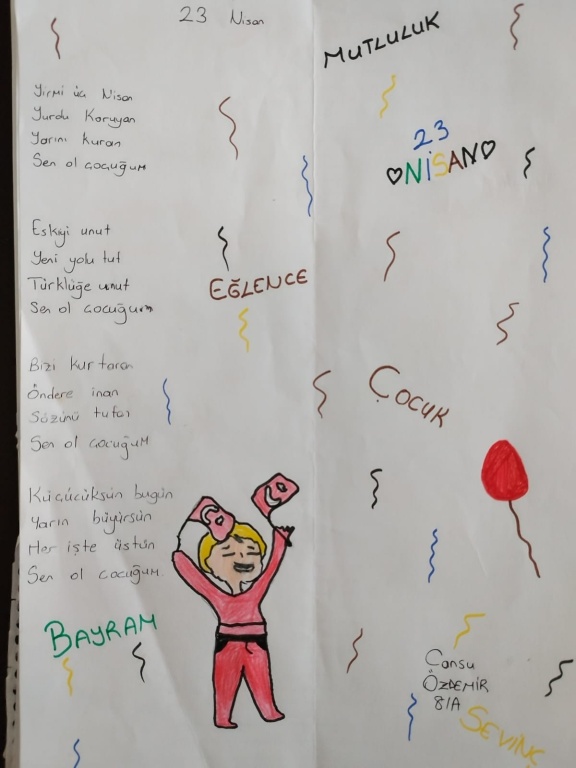 23 Nisan
Yirmi üç Nisan
Yurdu Koruyan
Yarını kuran
Sen ol çocuğum
Eskiyi unut
Yeni yolu tut
Türklüğe unut
Sen ol çocuğum
Bizi kurtaran
Öndere inan
Sözünü tutar
Sen ol çocuğum
Küçücüksün bugün
Yarın büyürsün
Her işte üstün
Sen ol çocuğum.
BAYRAM
EĞLENCE
MUTLULUK
23
NİSAN
ÇOCUK
Cansu
ÖZDEMİR
8/A
SEVİNÇ